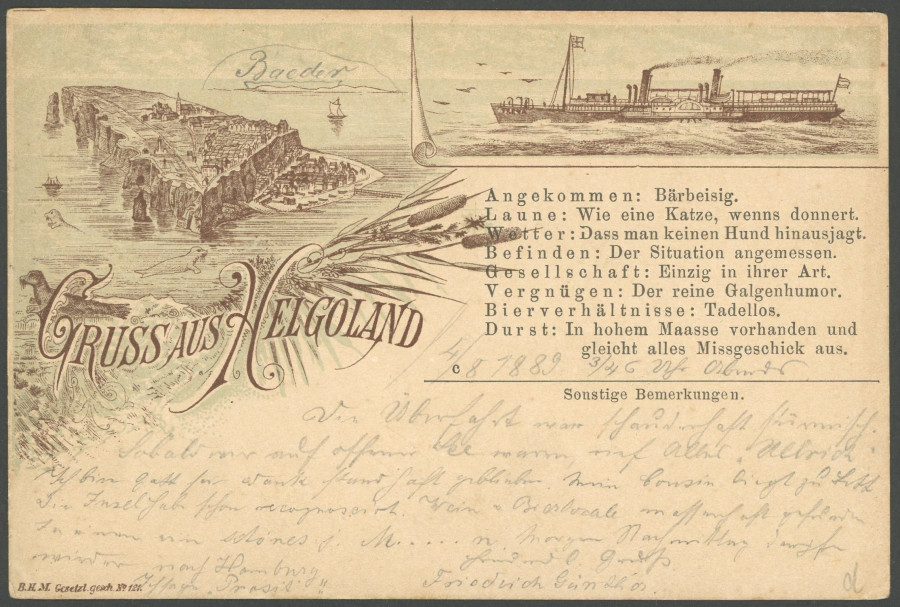 Baeder
Angekommen: Bärbeisig.
Laune: Wie eine Katze, wenns donnert.
Wetter: Dass man keinen Hund hinausjagt.
Befinden: Der Situation angemessen.
Gesellschaft: Einzig in ihrer Art.
Vergnügen: Der reine Galgenhumor.
Bierverhältnisse: Tadellos.
Durst: In hohem Maasse vorhanden und
gleicht alles Missgeschick aus.
GRUSS AUS HELGOLAND
c
4/8 1889 3/4 6 Uhr Abends
Sonstige Bemerkungen.
Die Überfahrt war schauderhaft stürmisch.
Sobald wir auf offener See waren, rief Alles
Ich bin Gott sei Dank standhaft geblieben. Mein Cousin liegt zu Bett
Die Insel habe schon recognoscirt. Wein u Bierlocale massenhaft gefunden
M..... Morgen Nachmittag
wieder nach Hamburg
Gruss
Ich sage "Prosit"
Friedrich Günther
B.K.M. Gesetzl. gesch. Nº 121.